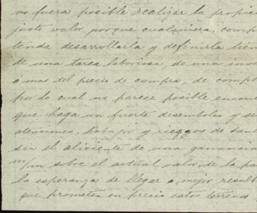 no fuera posible realizar la propie
justo valor porque cualquiera, comp
tende desarrollarla y definirla tien
de una tarea laboriosa, de una
a mas del precio de compra, de
por lo cual no parece posible
que haga un fuerte desembolso y se
atenciones, trabajo y riesgos de
sin el aliciente de una ganancia
sobre el actual valor de la
la esperanza de llegar a mejor
que prometen en precio estos terrenos